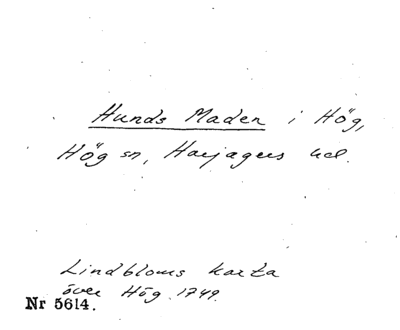 Hunds Maden i Hög,
Hög sn, Harjagers hd.
Lindbloms karta
över Hög 1749.
Nr 5614.